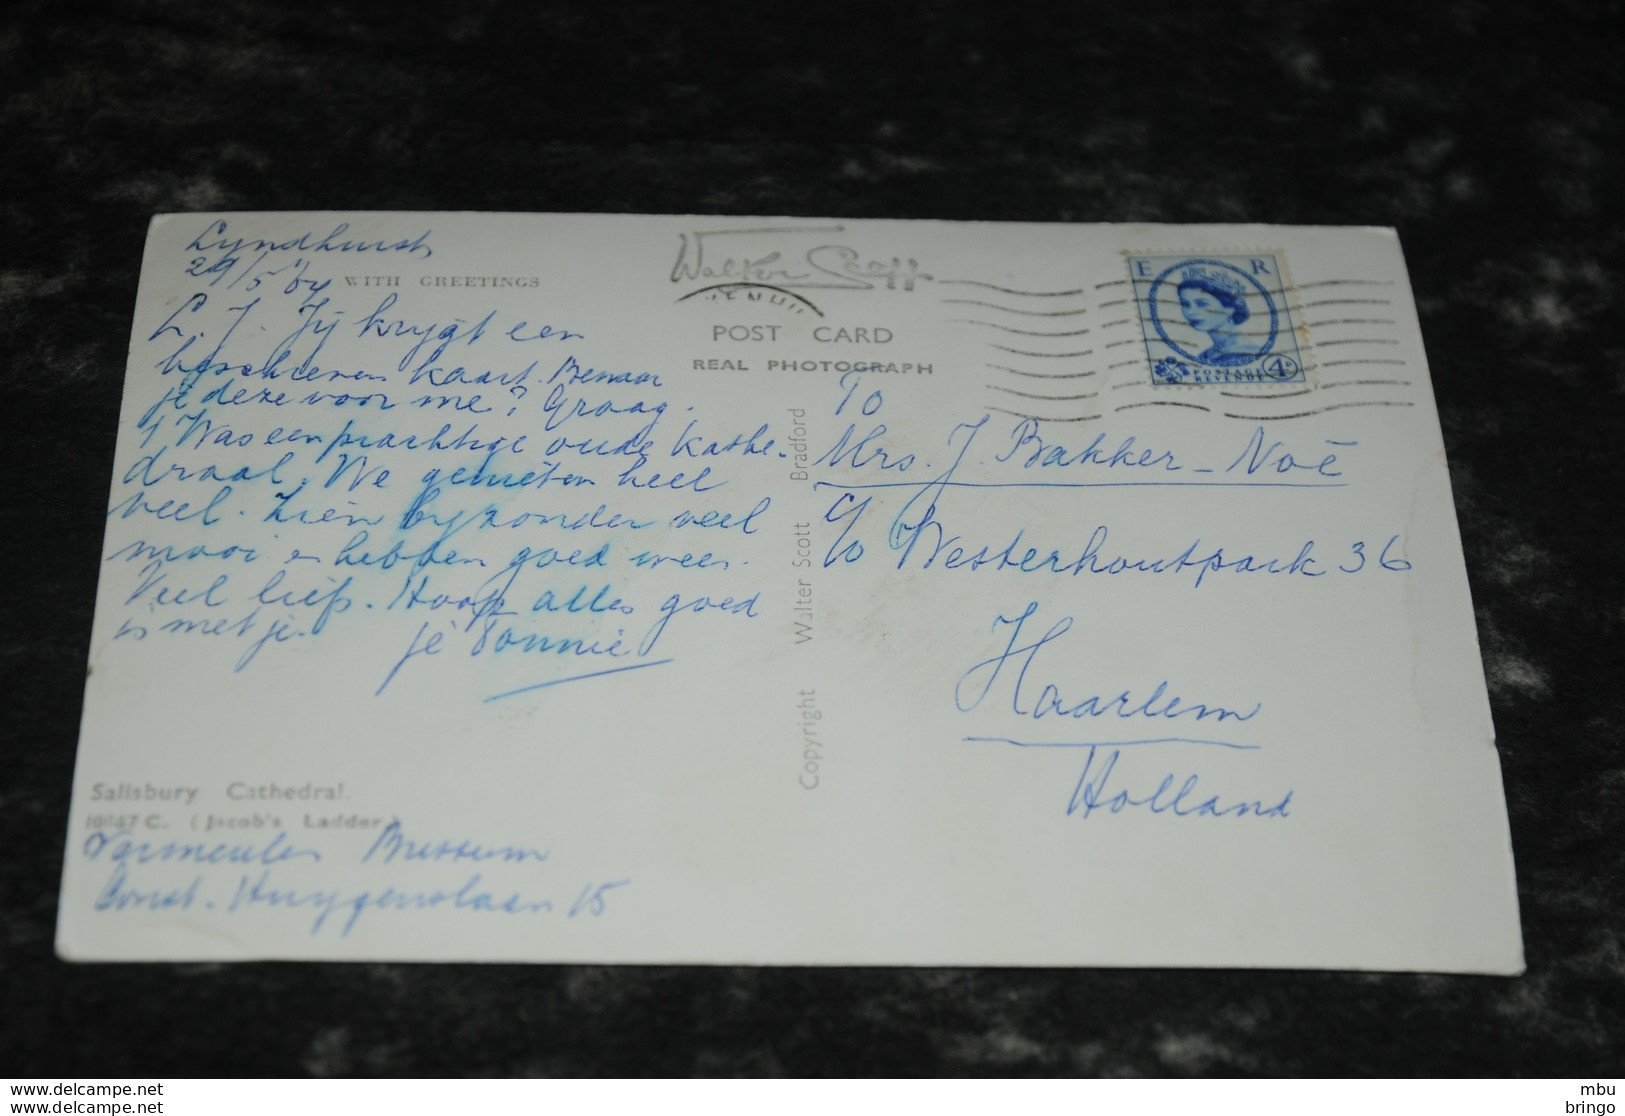 Lyndhurst
29/5 '64
WITH GREETINGS
L. J. Jij krygt een
beschreven kaart. Bewaar
je deze voor me? Graag.
't Was een prachtige oude kathe-
draal. We genieten heel
veel. Zien byzonder veel
moois en hebben goed weer.
Veel liefs. Hoop alles goed
is met je.
je Connie
Salisbury Cathedral.
10847 C. (Jacob's Ladder)
Vermeulen Bussum
Const. Huygenslaan 15
Walter Scott
POST CARD
REAL PHOTOGRAPH
Copyright Walter Scott Bradford
E R
POSTAGE
REVENUE
4D
To
Mrs. J. Bakker-Noë
c/o Westerhoutpark 36
Haarlem
Holland
www.delcampe.net
www.delcampe.net
mbu
bringo